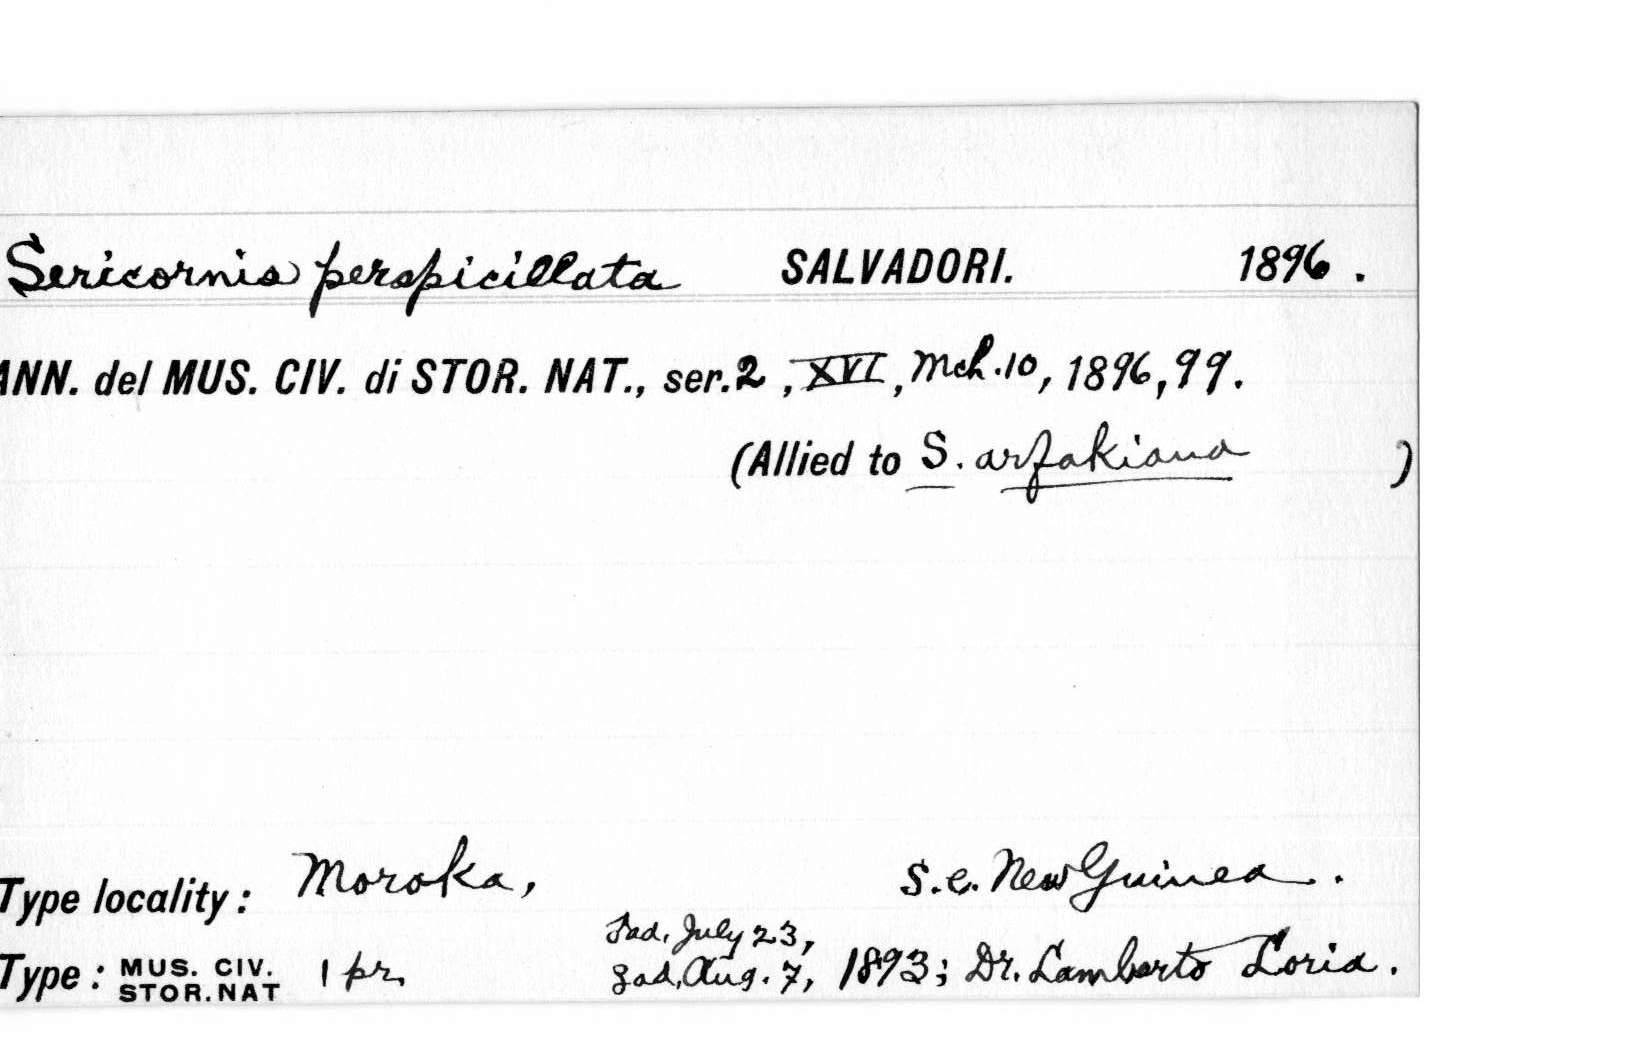 Sericornis perspicillata SALVADORI. 1896 .
ANN. del MUS. CIV. di STOR. NAT., ser.2 , XVI, Mch.10, 1896, 99.
(Allied to S. arfakiana )
Type locality: Moroka, S.E. New Guinea .
♂ad. July 23,
Type: MUS. CIV. STOR.NAT 1 pr. ♀ad. Aug. 7, 1893; Dr. Lamberto Loria .